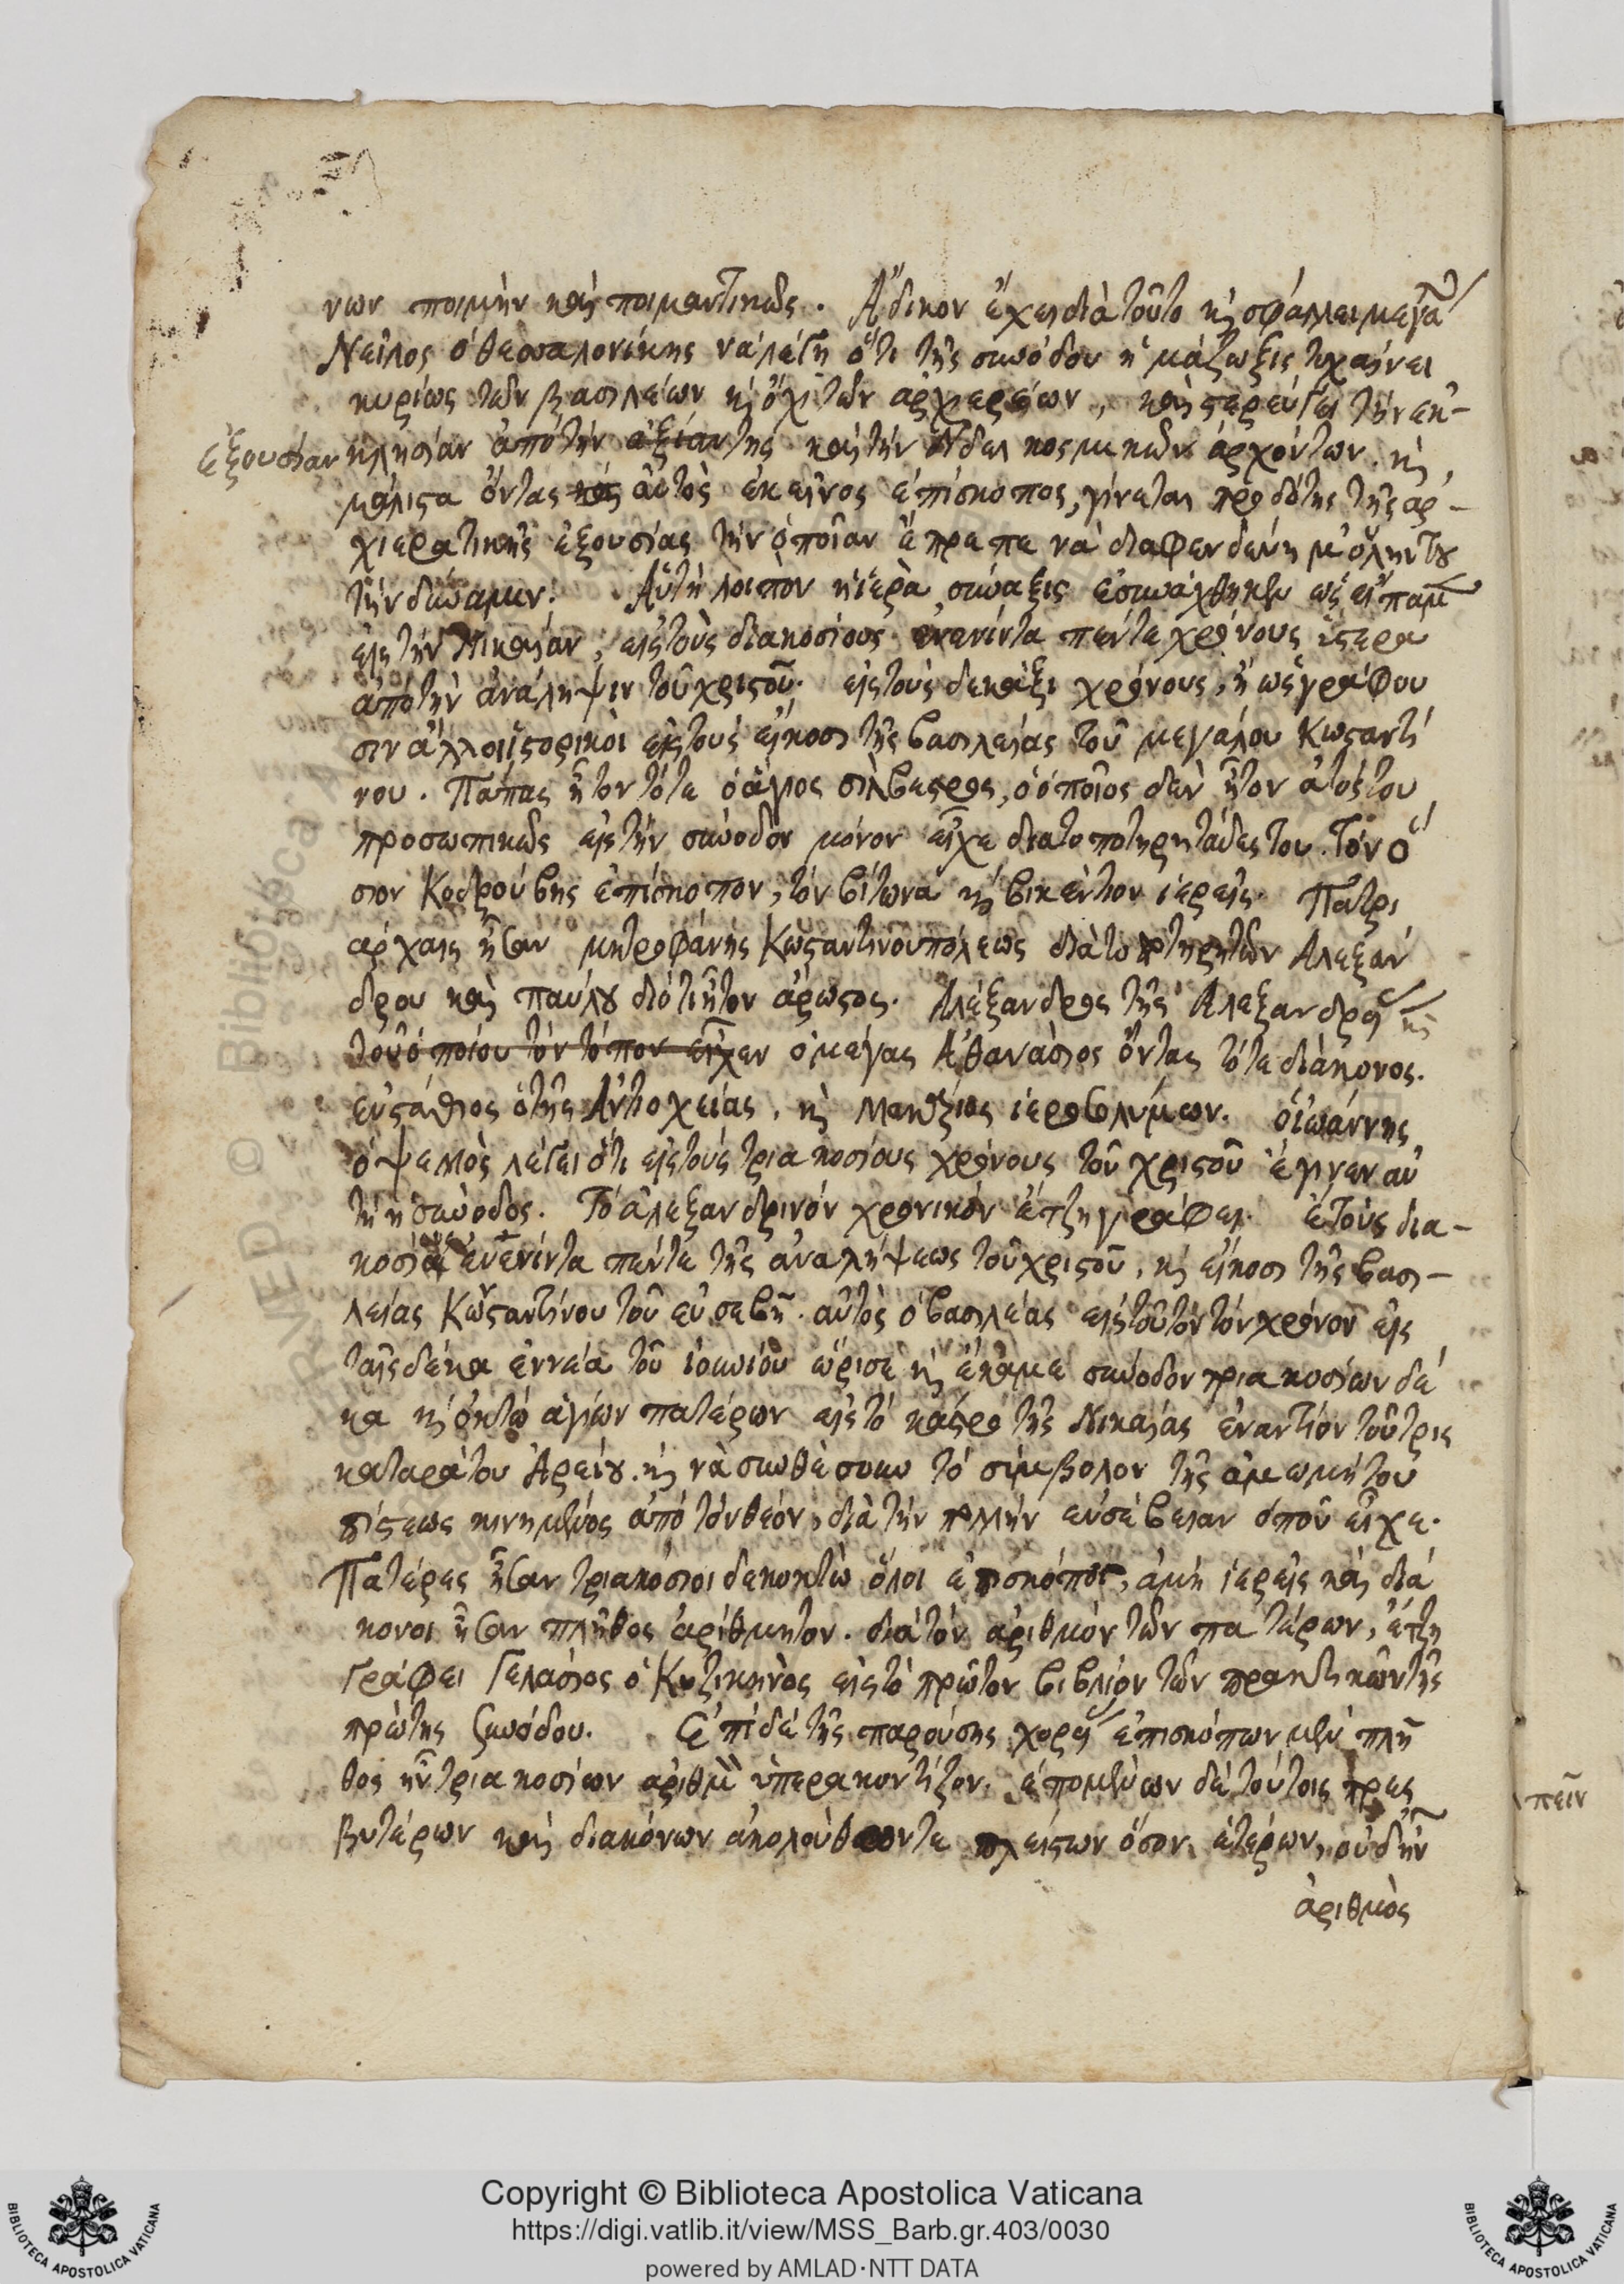 νων ποιμὴν καὶ ποιμαντικῶς. Ἄδικον ἔχει διὰ τοῦτο κὶ σφάλλει μεγά
Νεῖλος ὁ θεσσαλονίκης νὰ λέγη ὅτι τῆς συνόδου ἡ μάζωξις τυχαίνει
κυρίως τῶν βασιλείων κὶ ὄχι τῶν ἀρχιερέων, καὶ στερεύγει τὴν ἐκ-
ἐξουσίαν κλησίαν ἀπὸ τὴν ἀξίαν της καὶ τὴν δίδει κοσμικῶν ἀρχόντων. κὶ
μάλιστα ὄντας καὶ αὐτὸς ἐκεῖνος ἐπίσκοπος, γίνεται προδότης τῆς ἀρ-
χιερατικῆς ἐξουσίας τὴν ὁποῖαν ἔπρεπε νὰ διαφενδεύη μὲ ὅλην του
τὴν δύναμιν. Αὐτὴ λοιπὸν ἡ ἱερὰ σύναξις ἐσυνάχθηκεν ὡς εἴπαμεν
εἰς τὴν Νίκαιαν, εἰς τοὺς διακοσίους ἐνενίντα πέντε χρόνους ὕστερα
ἀπὸ τὴν ἀνάληψιν τοῦ χριστοῦ. εἰς τοὺς δεκαέξι χρόνους, ἢ ὡς γράφου
σιν ἄλλοι ἱστορικοὶ εἰς τοὺς εἴκοσι τῆς βασιλείας τοῦ μεγάλου Κωσταντί
νου. Πάπας ἦτον τότε ὁ ἅγιος σίλβεστρος, ὁ ὁποῖος δὲν ἦτον ἀτός του
προσωπικῶς εἰς τὴν σύνοδον μόνον εἶχε διατοποτηρητάδες του. Τὸν ὅ
σιον Κοδρούβης ἐπίσκοπον, τὸν βίτωνα κὶ βικέντιον ἱερεῖς. Πατρι
αρχαις ἦσαν μητροφάνης Κωσταντινουπόλεως διὰ τοποτηρητῶν Αλεξάν
δρου καὶ παύλου διότι ἦτον ἄρωστος. Ἀλέξανδρος τῆς Ἀλεξανδρείας κὶ
τοῦ ὁποίου τὸν τόπον εἶχεν ὁ μέγας Ἀθανάσιος ὄντας τότε διάκονος.
εὐστάθιος ὁ τῆς Ἀντιοχείας. κὶ Μακάριος ἱεροσολύμων. ὁ ἰωάννης
ὁ ψελλὸς λέγει ὅτι εἰς τοὺς τριακοσίους χρόνους τοῦ χριστοῦ ἔγινεν αὐ
τὴ ἡ σύνοδος. Τὸ ἀλεξανδρινόν χρονικὸν ἔτζη γράφει. ἔτους δια-
κοσίους ἐνενίντα πέντε τῆς ἀναλήψεως τοῦ χριστοῦ, κὶ εἴκοσι τῆς βασι-
λείας Κωσταντίνου τοῦ εὐσεβῆ. αὐτὸς ὁ βασιλέας εἰς τοῦτον τὸν χρόνον εἰς
ταῖς δέκα ἐννεά τοῦ ἰουνίου ὥρισε κὶ ἔκαμε σύνοδον τριακοσίων δέ
κα κὶ ὀκτώ ἁγίων πατέρων εἰς τὸ κάστρο τῆς Νικαίας ἐναντίον τοῦ τρις
καταράτου Ἀρείου. κὶ νὰ συνθέσουν τὸ σίμβολον τῆς ἀμωμήτου
πίστεως κινημένος ἀπὸ τὸν θεόν, διὰ τὴν πολλὴν εὐσέβειαν ὁποῦ εἶχε.
Πατέρες ἦσαν τριακόσιοι δεκοκτὼ ὅλοι ἐπισκόποι, ἀμὴ ἱερεῖς καὶ διά
κονοι ἦσαν πλῆθος ἀρίθμητον. διὰ τὸν ἀριθμὸν τῶν πατέρων, ἔτζη
γράφει Γελάσιος ὁ Κυζικηνὸς εἰς τὸ πρῶτον βιβλίον τῶν πρακτικῶν τῆς
πρώτης Συνόδου. Ἐπὶ δὲ τῆς παρούσης χορείας ἐπισκόπων μὲν πλῆ
θος ἦν τριακοσίων ἀριθμὸν ὑπερακοντίζον. ἑπομένων δὲ τούτοις πρεσ
βυτέρων καὶ διακόνων ἀκολούθων τε πλείστων ὅσον ἑτέρων, οὐδ' ἦν
ἀριθμὸς
πεῖν